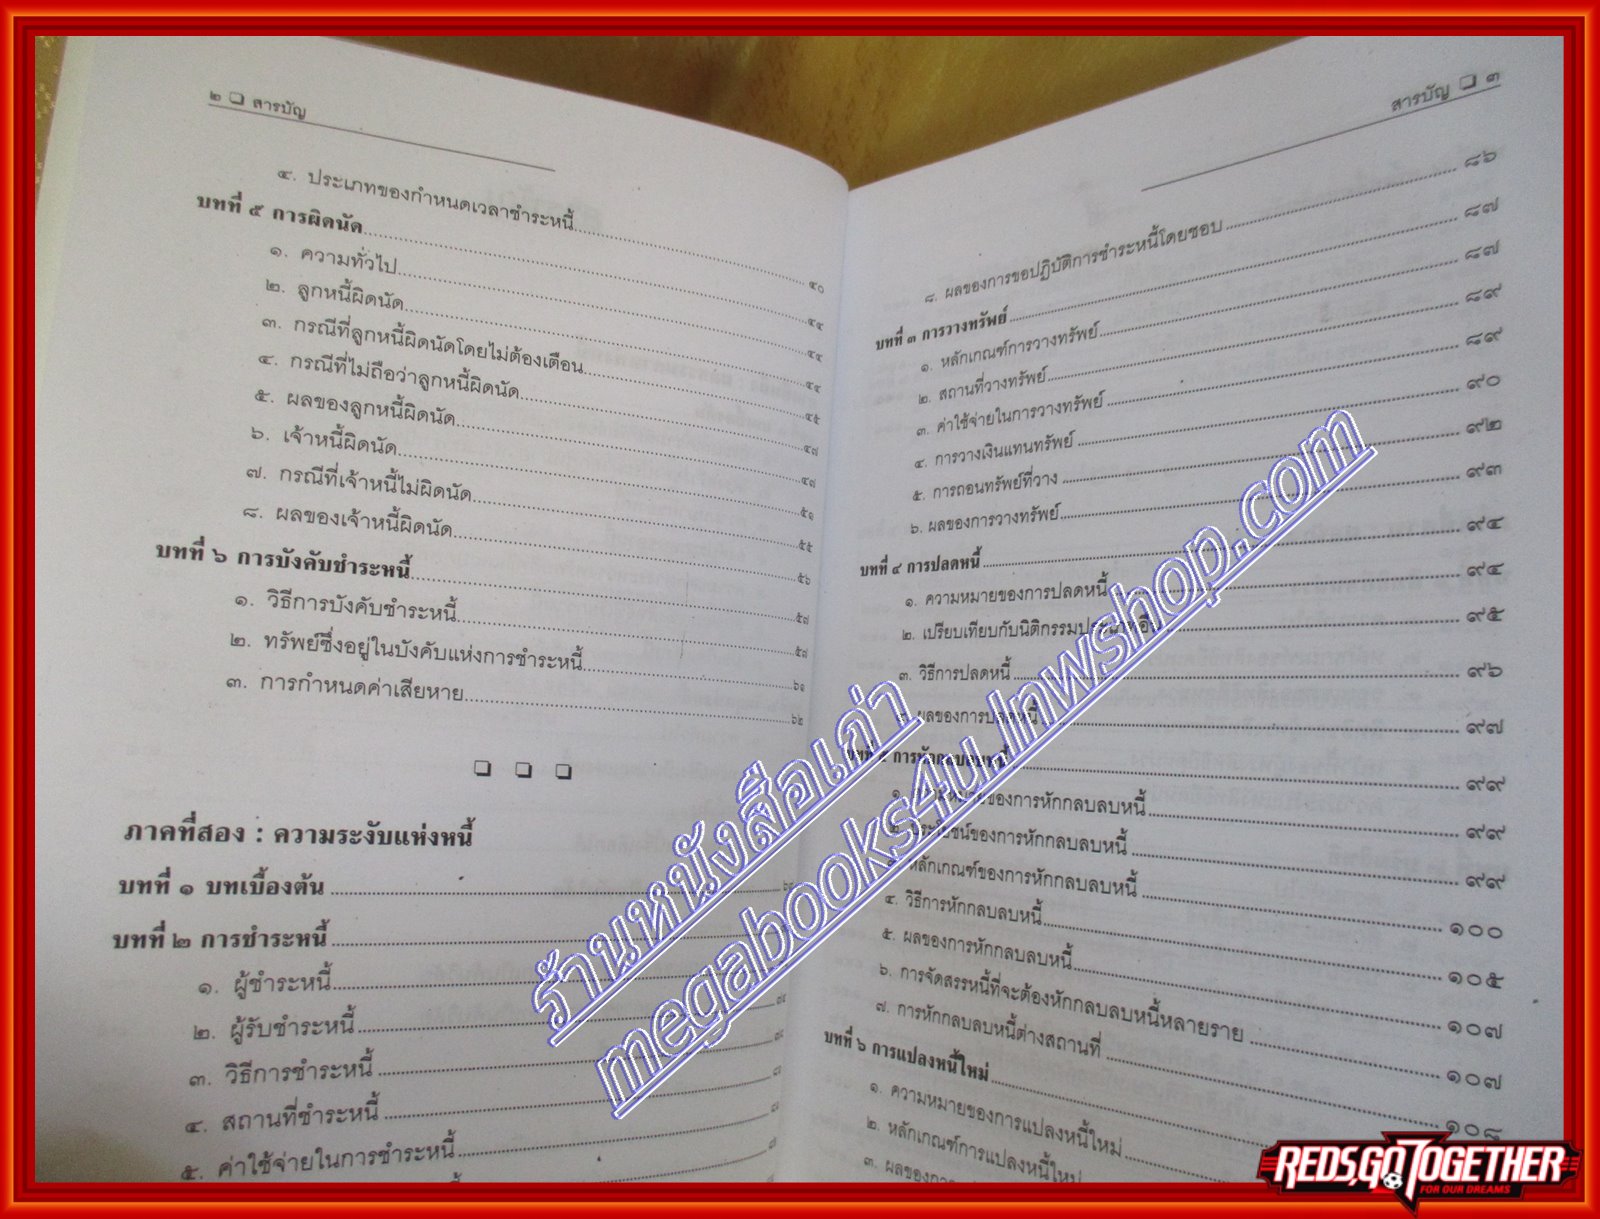 ๒ ❑ สารบัญ
๔. ประเภทของกำหนดเวลาชำระหนี้ ๔๐
บทที่ ๕ การผิดนัด ๔๔
๑. ความทั่วไป ๔๔
๒. ลูกหนี้ผิดนัด ๔๔
๓. กรณีที่ลูกหนี้ผิดนัดโดยไม่ต้องเตือน ๔๕
๔. กรณีที่ไม่ถือว่าลูกหนี้ผิดนัด ๔๗
๕. ผลของลูกหนี้ผิดนัด ๔๗
๖. เจ้าหนี้ผิดนัด ๕๑
๗. กรณีที่เจ้าหนี้ไม่ผิดนัด ๕๕
๘. ผลของเจ้าหนี้ผิดนัด ๕๖
บทที่ ๖ การบังคับชำระหนี้ ๕๘
๑. วิธีการบังคับชำระหนี้ ๕๘
๒. ทรัพย์ซึ่งอยู่ในบังคับแห่งการชำระหนี้ ๖๑
๓. การกำหนดค่าเสียหาย ๖๒
❑ ❑ ❑
ภาคที่สอง : ความระงับแห่งหนี้
บทที่ ๑ บทเบื้องต้น
บทที่ ๒ การชำระหนี้
๑. ผู้ชำระหนี้
๒. ผู้รับชำระหนี้
๓. วิธีการชำระหนี้
๔. สถานที่ชำระหนี้
๕. ค่าใช้จ่ายในการชำระหนี้
สารบัญ ❑ ๓
๘. ผลของการขอปฏิบัติการชำระหนี้โดยชอบ ๘๖
บทที่ ๓ การวางทรัพย์ ๘๗
๑. หลักเกณฑ์การวางทรัพย์ ๘๗
๒. สถานที่วางทรัพย์ ๘๙
๓. ค่าใช้จ่ายในการวางทรัพย์ ๘๙
๔. การวางเงินแทนทรัพย์ ๙๐
๕. การถอนทรัพย์ที่วาง ๙๒
๖. ผลของการวางทรัพย์ ๙๓
บทที่ ๔ การปลดหนี้ ๙๔
๑. ความหมายของการปลดหนี้ ๙๔
๒. เปรียบเทียบกับนิติกรรมประเภทอื่น ๙๕
๓. วิธีการปลดหนี้ ๙๖
๔. ผลของการปลดหนี้ ๙๗
บทที่ ๕ การหักกลบลบหนี้ ๙๙
๑. ความหมายของการหักกลบลบหนี้ ๙๙
๒. ประโยชน์ของการหักกลบลบหนี้ ๙๙
๓. หลักเกณฑ์ของการหักกลบลบหนี้ ๑๐๐
๔. วิธีการหักกลบลบหนี้ ๑๐๕
๕. ผลของการหักกลบลบหนี้ ๑๐๗
๖. การจัดสรรหนี้ที่จะต้องหักกลบลบหนี้หลายราย ๑๐๗
๗. การหักกลบลบหนี้ต่างสถานที่ ๑๐๘
บทที่ ๖ การแปลงหนี้ใหม่
๑. ความหมายของการแปลงหนี้ใหม่
๒. หลักเกณฑ์การแปลงหนี้ใหม่
๓. ผลของการแปลง
ร้านหนังสือเก่า
megabooks4u.lnwshop.com
REDS,GO TOGETHER
FOR OUR DREAMS